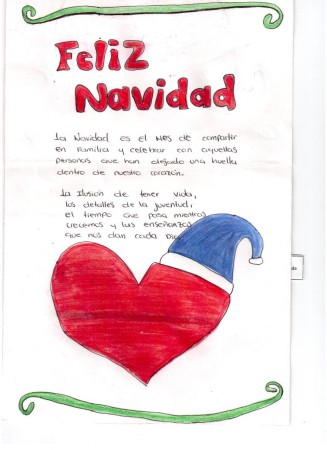 Feliz
Navidad
La Navidad es el mes de compartir
en Familia y celebrar con aquellas
personas que han dejado una huella
dentro de nuestro corazón.
La Ilusión de tener vida,
los detalles de la juventud,
el tiempo que pasa mientras
crecemos y las enseñanzas
que nos dan cada Dia